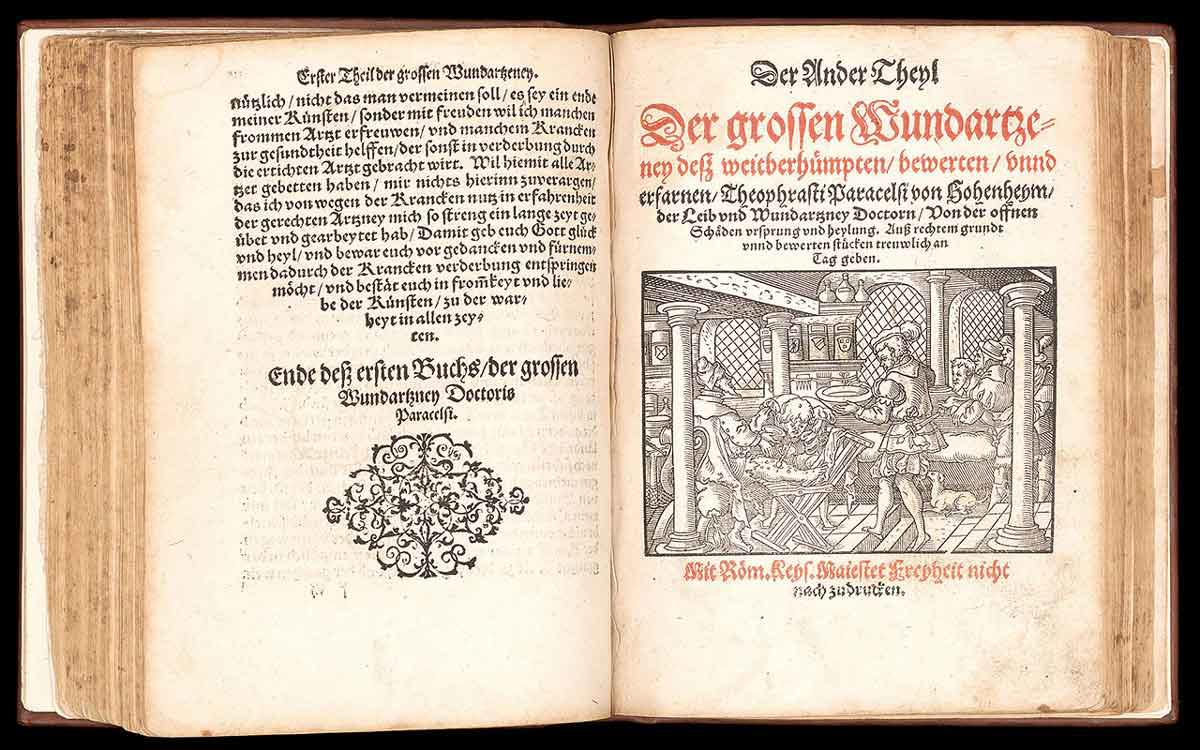 Erster Theil der grossen Wundartzeney.
nützlich / nicht das man vermeinen soll / es sey ein ende
meiner Künsten / sonder mit freuden wil ich manchen
frommen Artzt erfreuwen / vnd manchem Krancken
zur gesundtheit helffen / der sonst in verderbung durch
die ertichten Artzt gebracht wirt. Wil hiemit alle Ar-
tzet gebetten haben / mir nichts hierinn zuverargen /
das ich von wegen der Krancken nutz in erfahrenheit
der gerechten Artzney mich so streng ein lange zeyt ge-
übet vnd gearbeytet hab / Damit geb euch Gott glück
vnd heyl / vnd bewar euch vor gedancken vnd fürnem-
men dadurch der Krancken verderbung entspringen
möcht / vnd bestät euch in fromkeyt vnd lie-
be der Künsten / zu der war-
heyt in allen zey-
ten.
Ende deß ersten Buchs / der grossen
Wundartzney Doctoris
Paracelsi.
Der Ander Theyl
Der grossen Wundartze-
ney deß weitberhümpten / bewerten / vnnd
erfarnen / Theophrasti Paracelsi von Hohenheym /
der Leib vnd Wundartzney Doctorn / Von der offnen
Schäden vrsprung vnd heylung. Auß rechtem grundt
vnnd bewerten stücken treuwlich an
Tag geben.
Mit Röm. Keys. Maiestet Freyheit nicht
nach zudrucken.